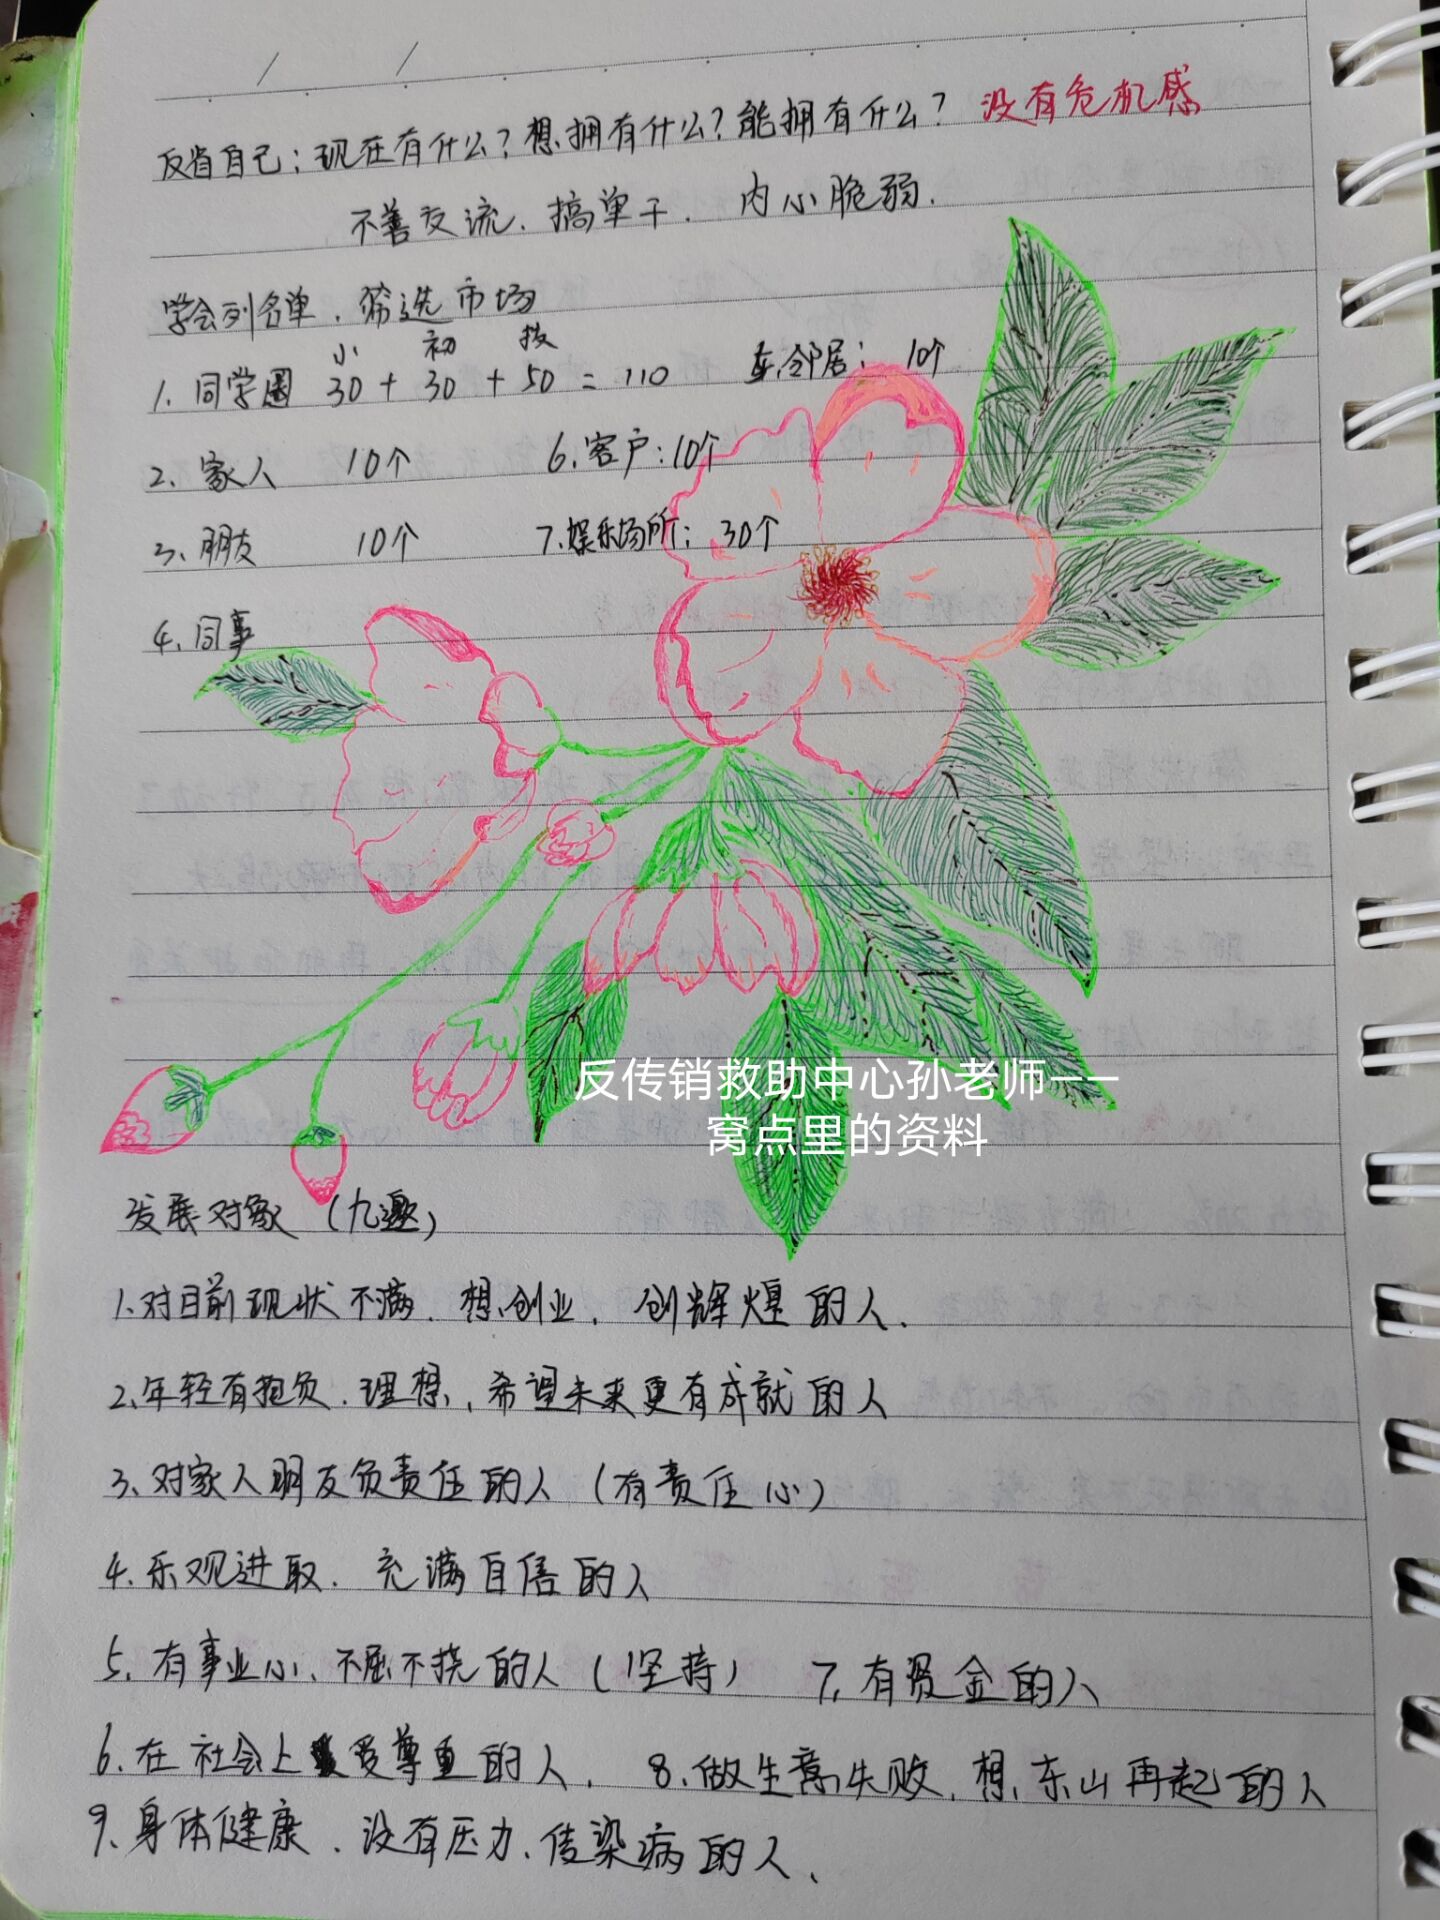 反省自己：现在有什么？想拥有什么？能拥有什么？ 没有危机感
不善交流．搞单干．内心脆弱．
学会列名单．筛选市场
小 初 技
1、同学圈 30 + 30 + 50 = 110 5、邻居：10个
2、家人 10个 6、客户：10个
3、朋友 10个 7、娱乐场所：30个
4、同事
反传销救助中心孙老师——
窝点里的资料
发展对象（九邀）
1、对目前现状不满．想创业．创辉煌的人．
2、年轻有抱负．理想、希望未来更有成就的人
3、对家人朋友负责任的人（有责任心）
4、乐观进取．充满自信的人
5、有事业心、不屈不挠的人（坚持） 7、有资金的人
6、在社会上受尊重的人． 8、做生意失败．想东山再起的人
9、身体健康．没有压力、传染病的人、